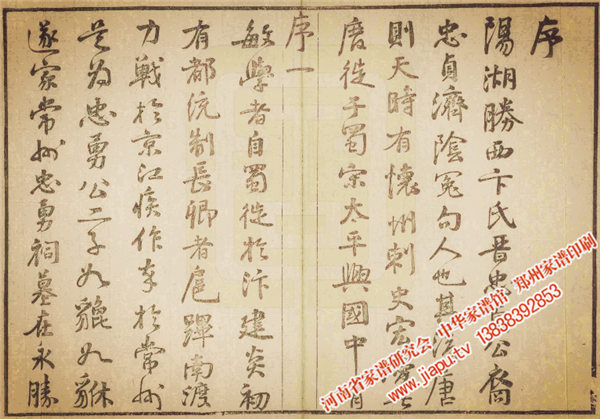 序
陽湖勝西卞氏晉忠貞公裔
忠貞濟陰冤句人也其後唐
則天時有懷州刺史宏
唐徙于蜀宋太平興國中有
序一
敏學者自蜀徙於汴建炎初
有都統制長卿者扈蹕南渡
力戰於京江疾作卒於常州
是為忠勇公二子如貔如貅
遂家常州忠勇祠墓在永勝
河南省家谱研究会 中华家谱馆 郑州家谱印刷
www.jiapu.tv 13838392853